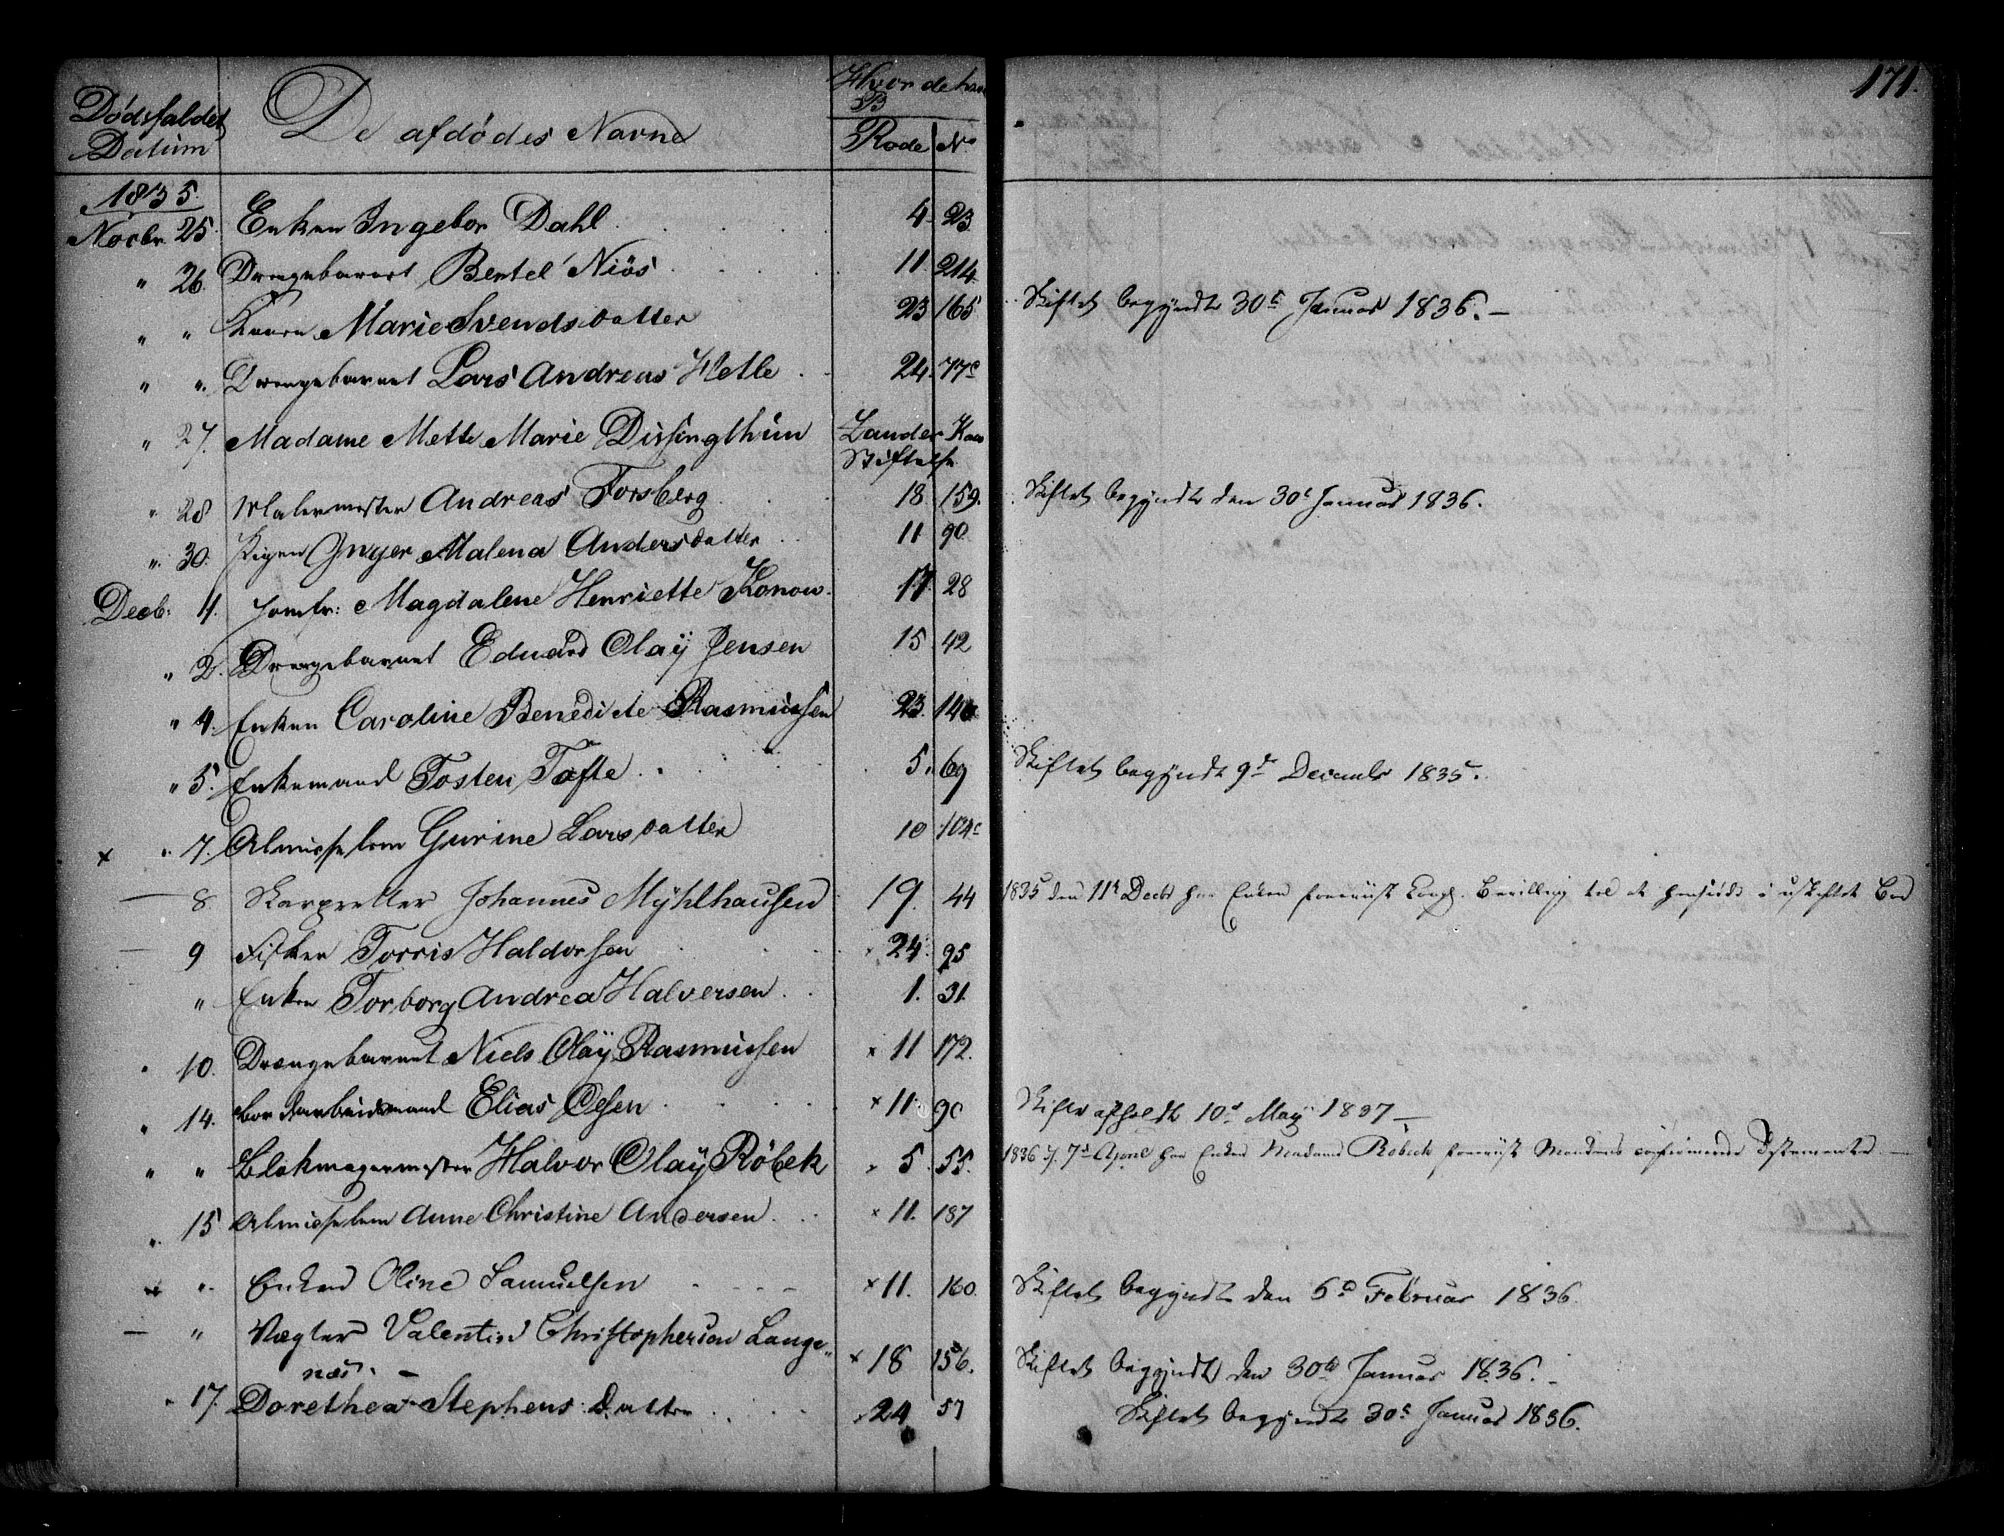 171.
Dødsfaldets Datum
De afdødes Navne
Hvor de have
Rode No
1835.
Novbr. 25. Enken Ingebor Dahl 4. 23
" 26. Drengebarnet Bertel Niös 11. 214
" " Konen Marie Svendsdatter 23 165 Skiftet begyndt 30t Januar 1836.
" ". Drengebarnet Lars Andreas Hetle 24. 77c
" 27. Madame Mette Marie Dissingthun Zander Kaas
Stiftelse
" 28 Malermester Andreas Forsberg 18. 159. Skiftet begyndt den 30t Januar 1836.
". 30. Pigen Inger Malena Andersdatter 11 90
Decb: 1. Jomfr: Magdalene Henriette Konow. 17. 28
" 2. Drengebarnet Eduard Olaÿ Jensen 15 42
" 4. Enken Caroline Benedicte Rasmussen 23. 140
" 5. Enkemand Tosten Tofte 5. 69 Skiftet begyndt 9de Decembr 1835.
x " 7. Almisselem Gurine Larsdatter 10 104c
— 8 Skarpretter Johannes Mÿhlhausen 19. 44 1835 den 11t Decbr har Enken foreviist Kongl. Bevilling til at hensidde i uskiftet Boe
— 9 Fisker Torris Haldorsen x 24. 95
" Enken Torborg Andrea Halversen 1. 31.
" 10. Drengebarnet Niels Olaÿ Rasmussen x 11 172.
" 14. Bordarbeidsmand Elias Olsen x 11 90 Skifte afholdt 10d May 1837 —
" " Blokmagermester Halvor Olaÿ Röbek x 5. 55. 1836 d. 7d April har Enken Madame Röbeck foreviist Mandens confirmerede Testamente. —
" 15 Almisselem Anne Christine Andersen x 11. 187
". Enken Oline Samuelsen x 11. 160. Skiftet begyndt den 5d Februar 1836.
— " Vægter Valentin Christophersen Lange-
næs. — x 18 156. Skiftet begyndt den 30te Januar 1836. —
" 17. Dorethea Stephens Datter x 24 57 Skiftet begyndt 30t Januar 1836.